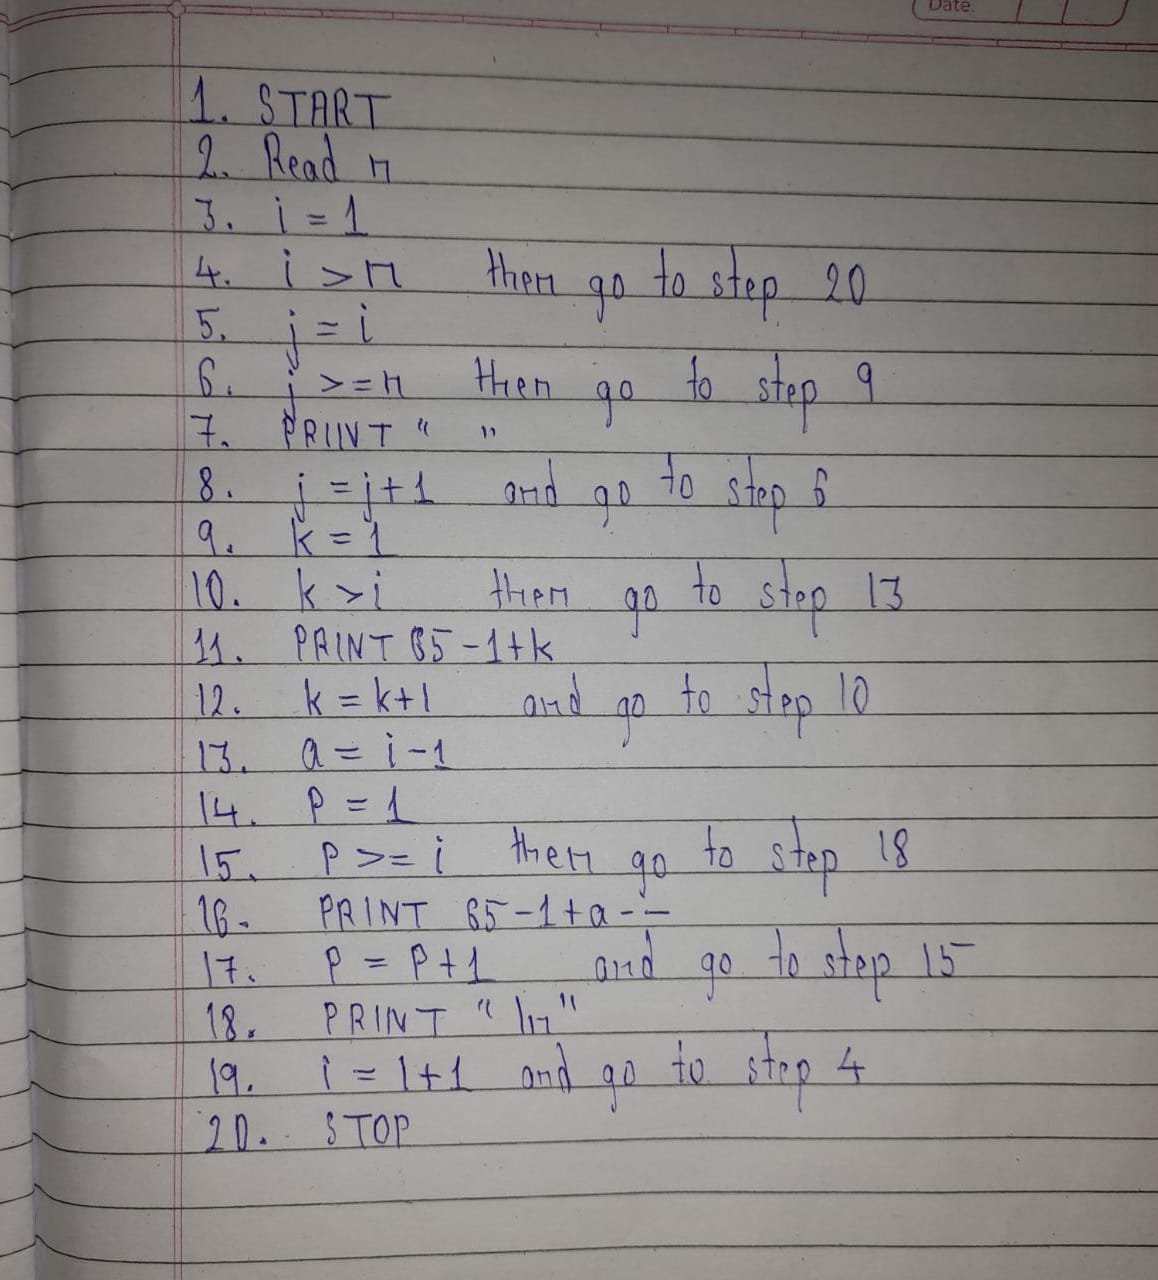 Date.
1. START
2. Read n
3. i = 1
4. i > n then go to step 20
5. j = i
6. j >= n then go to step 9
7. PRINT “ ”
8. j = j+1 and go to step 6
9. k = 1
10. k > i then go to step 13
11. PRINT 65-1+k
12. k = k+1 and go to step 10
13. a = i-1
14. P = 1
15. P >= i then go to step 18
16. PRINT 65-1+a--
17. P = P+1 and go to step 15
18. PRINT “\n”
19. i = i+1 and go to step 4
20. STOP